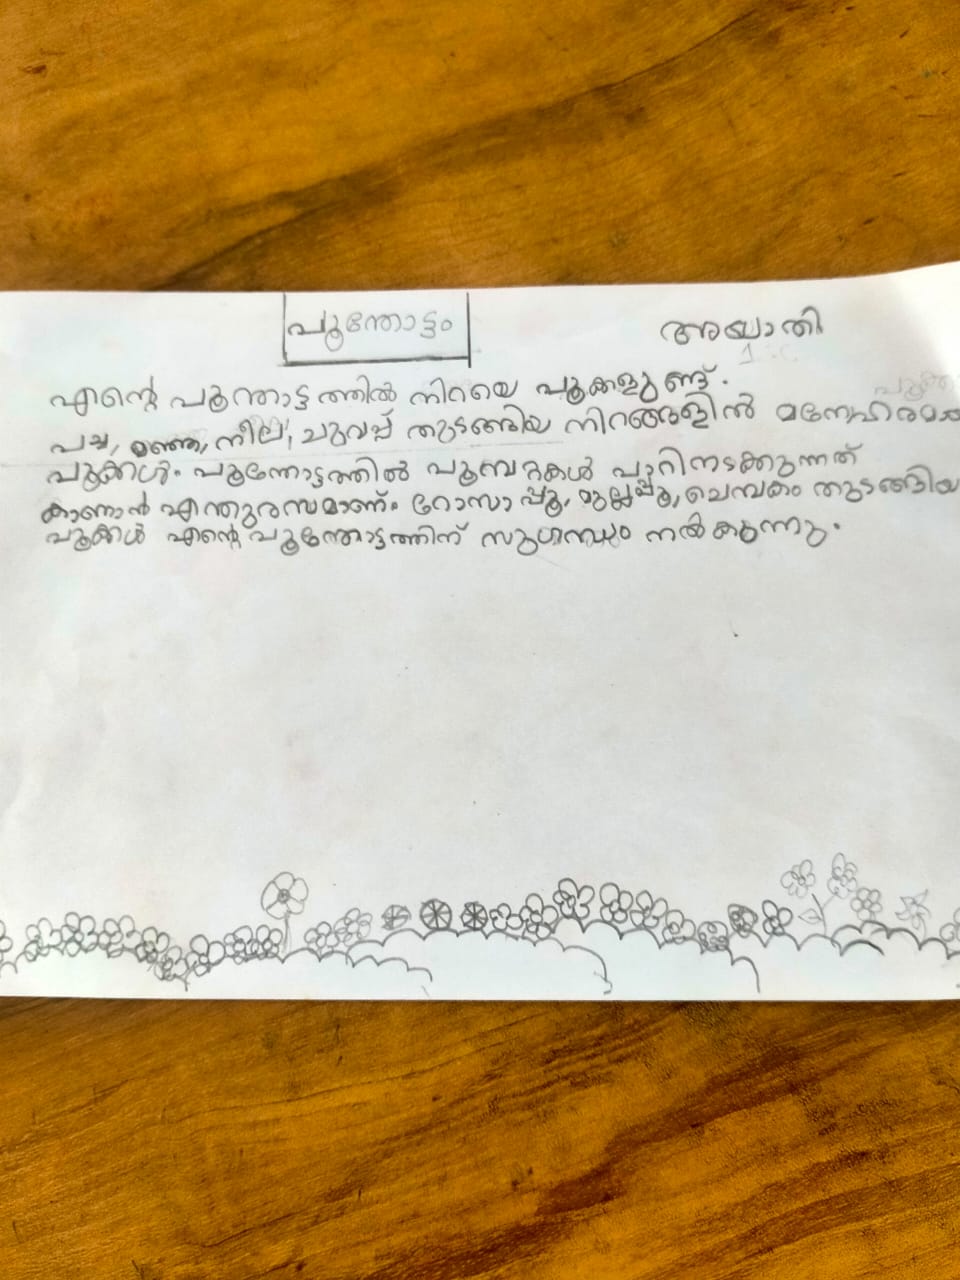 പൂന്തോട്ടം
അയാതി
1 C
എന്റെ പൂന്തോട്ടത്തിൽ നിറയെ പൂക്കളുണ്ട്.
പച്ച, മഞ്ഞ, നീല, ചുവപ്പ് തുടങ്ങിയ നിറങ്ങളിൽ
പൂക്കൾ. പൂന്തോട്ടത്തിൽ പൂമ്പറ്റകൾ പാറിനടക്കുന്നത്
കാണാൻ എന്തുരസമാണ്. റോസാപ്പൂ, മുല്ലപ്പൂ, ചെമ്പകം തുടങ്ങിയ
പൂക്കൾ എന്റെ പൂന്തോട്ടത്തിന് സുഗന്ധം നൽകുന്നു.